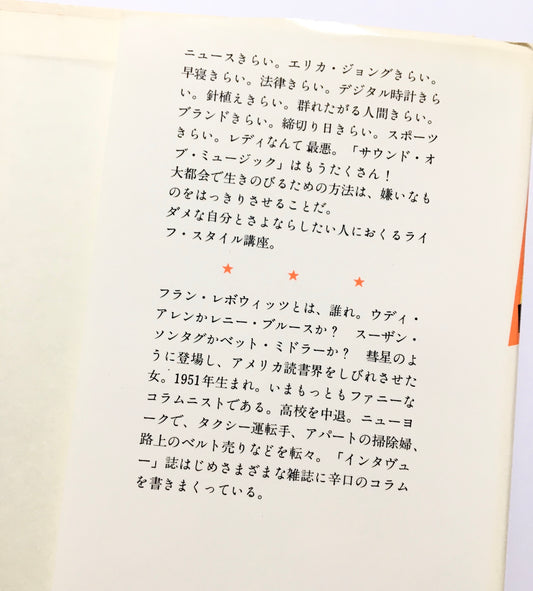 ニュースきらい。エリカ・ジョングきらい。
早寝きらい。法律きらい。デジタル時計きら
い。針植えきらい。群れたがる人間きらい。
ブランドきらい。締切り日きらい。スポーツ
きらい。レディなんて最悪。「サウンド・オ
ブ・ミュージック」はもうたくさん！
大都会で生きのびるための方法は、嫌いなも
のをはっきりさせることだ。
ダメな自分とさよならしたい人におくるライ
フ・スタイル講座。
★ ★ ★
フラン・レボウィッツとは、誰れ。ウディ・
アレンかレニー・ブルースか？ スーザン・
ソンタグかベット・ミドラーか？ 彗星のよ
うに登場し、アメリカ読書界をしびれさせた
女。1951年生まれ。いまもっともファニーな
コラムニストである。高校を中退。ニューヨ
ークで、タクシー運転手、アパートの掃除婦、
路上のベルト売りなどを転々。「インタヴュ
ー」誌はじめさまざまな雑誌に辛口のコラム
を書きまくっている。